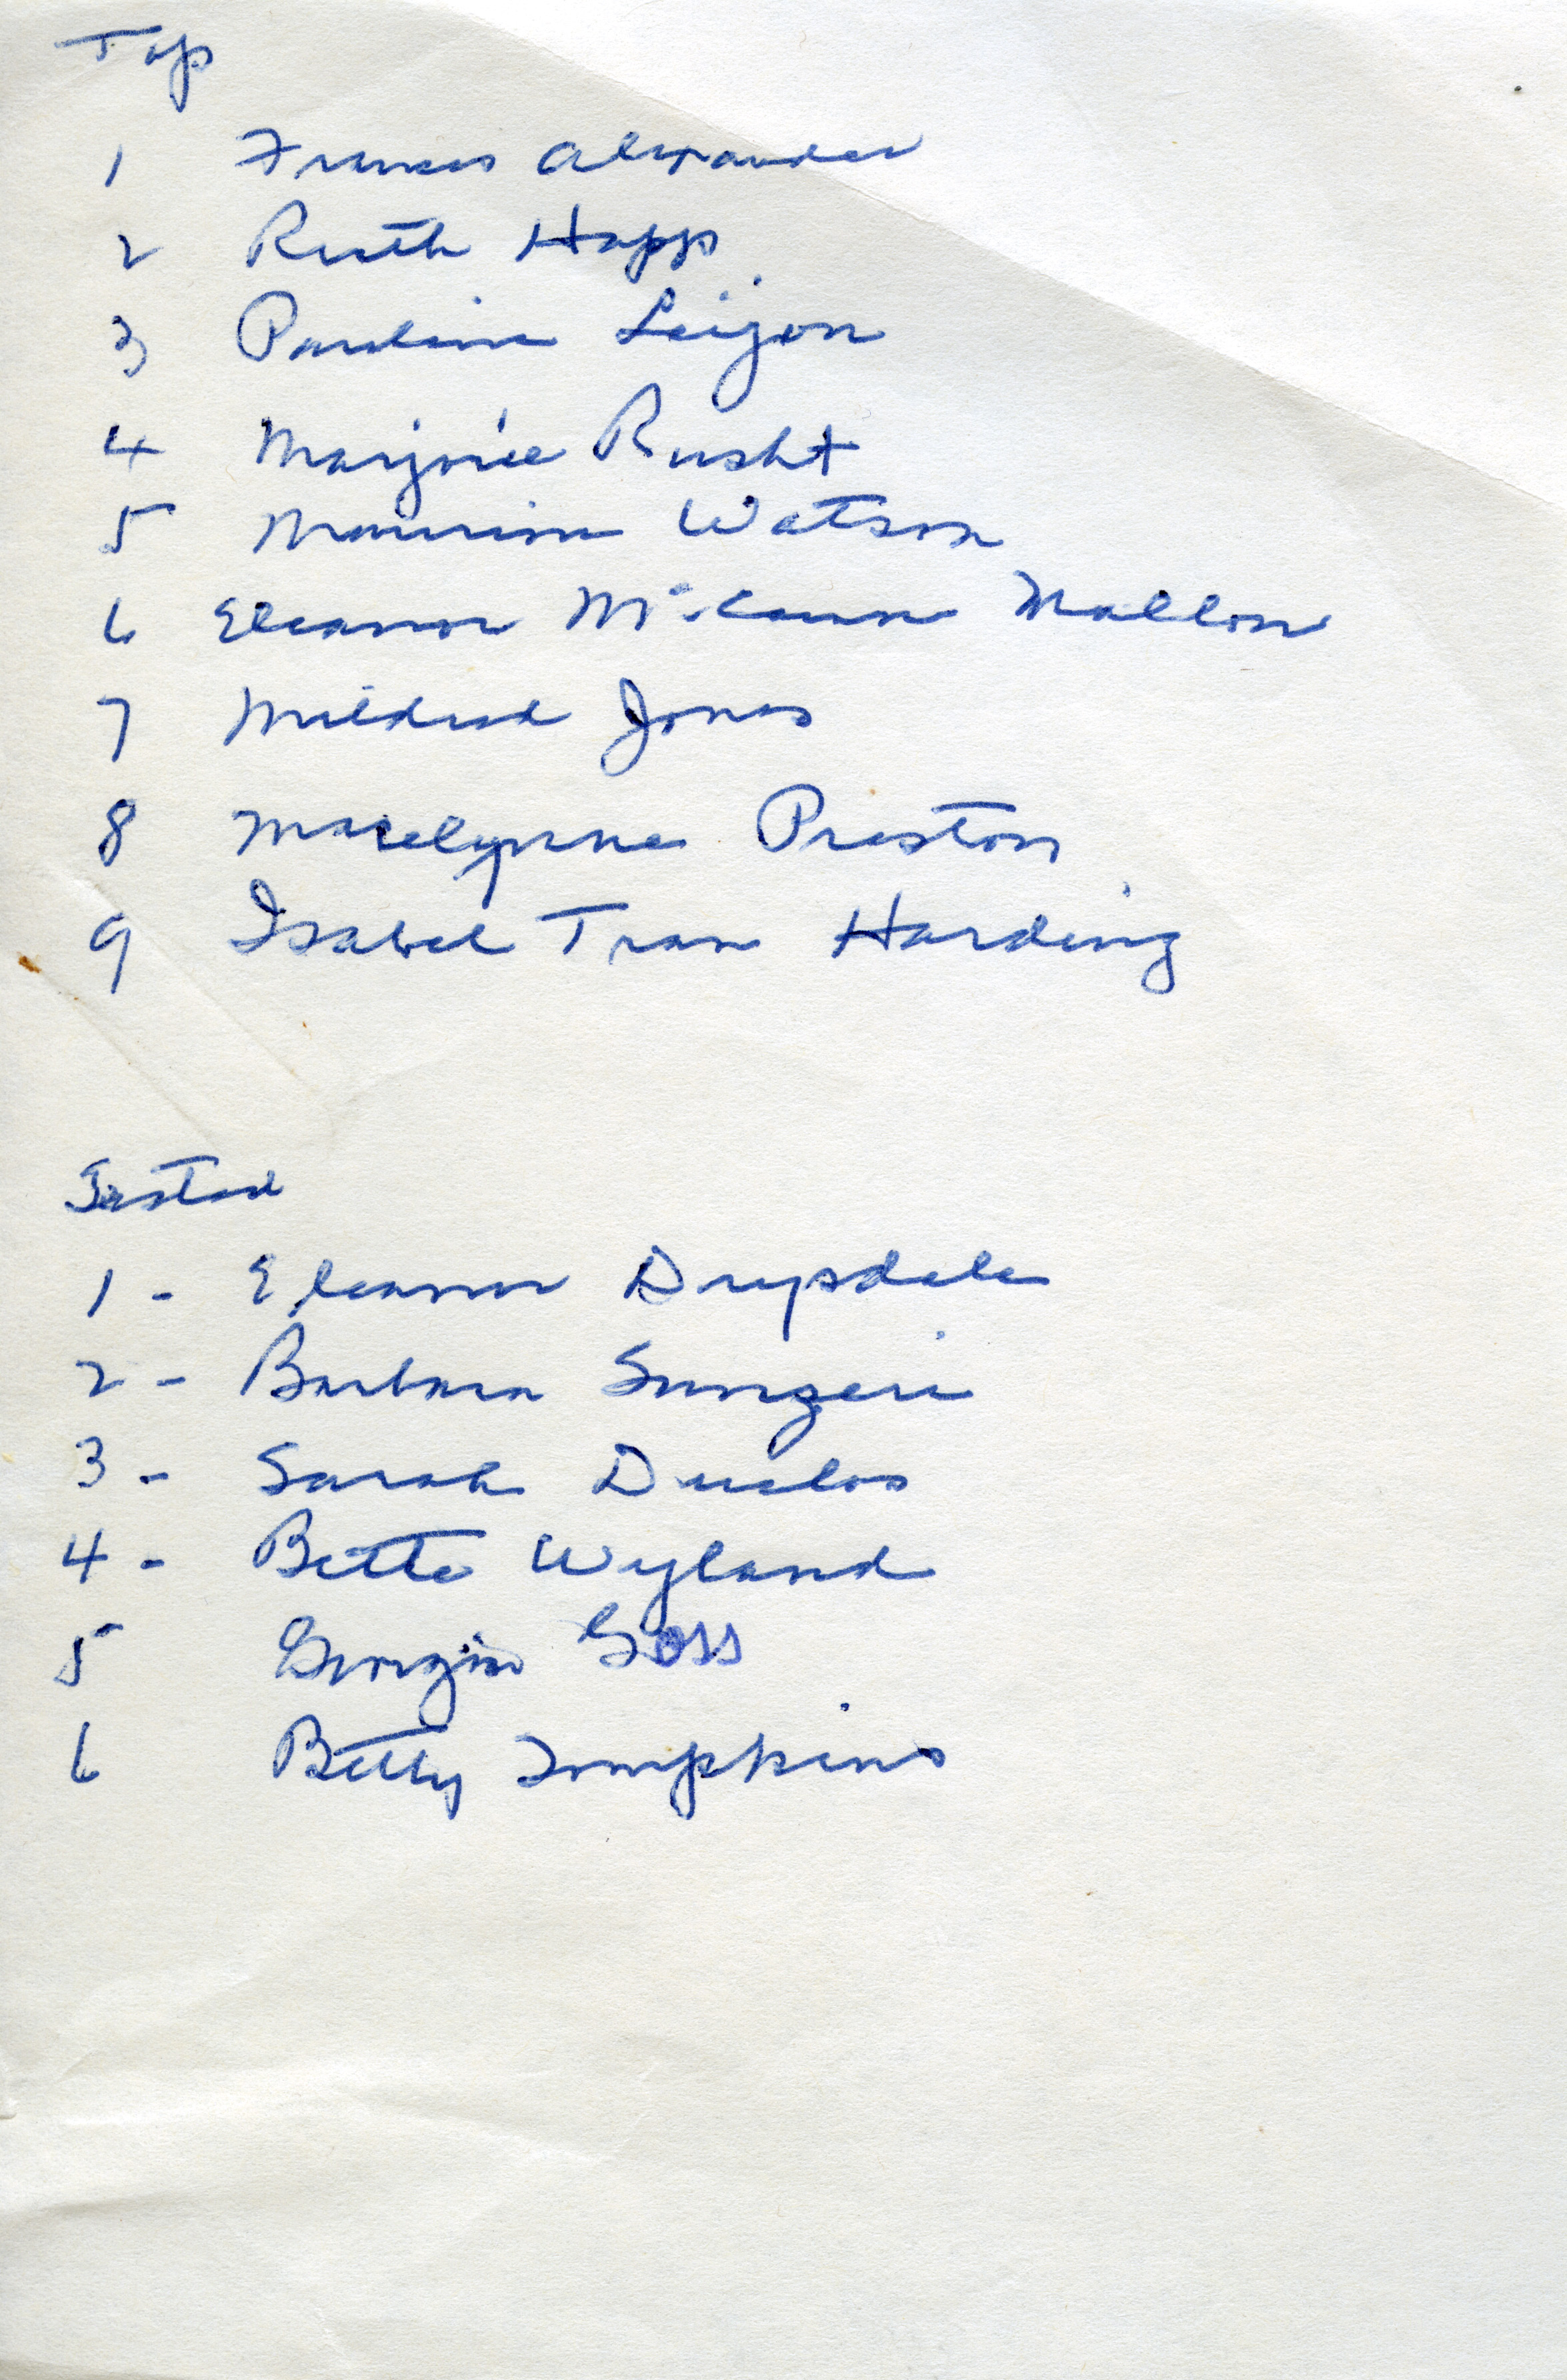 Top
1 Frances Alexander
2 Ruth Happ
3 Pauline Leijon
4 Marjorie Rusht
5 Maurine Watson
6 Eleanor McCann Mallon
7 Mildred Jones
8 Marelynne Preston
9 Isabel Tran Harding
Seated
1 - Eleanor Drysdale
2 - Barbara
3 - Sarah Duclos
4 - Bette Wyland
5 Georgia Goss
6 Betty Tompkins